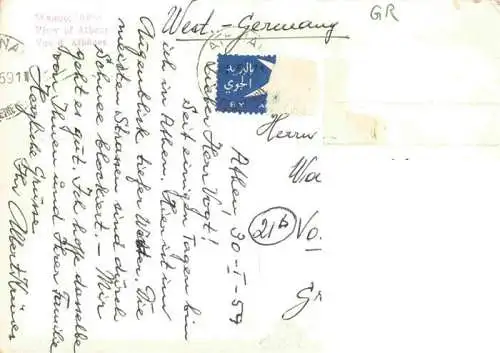 West.-Germany
GR
View of Athens
59
بالبريد
الجوي
BY A
Athen, 30-I-59
Lieber Herr Vogt!
Seit einigen Tagen bin
ich in Athen. Hier ist im
Augenblick tiefer Winter. Die
meisten Strassen sind durch
Schnee blockiert. - Mir
geht es gut. Ich hoffe dasselbe
von Ihnen und Ihrer Familie
Herzliche Grüsse
Ihr Albert
Herrn
Wa
21b
Vo